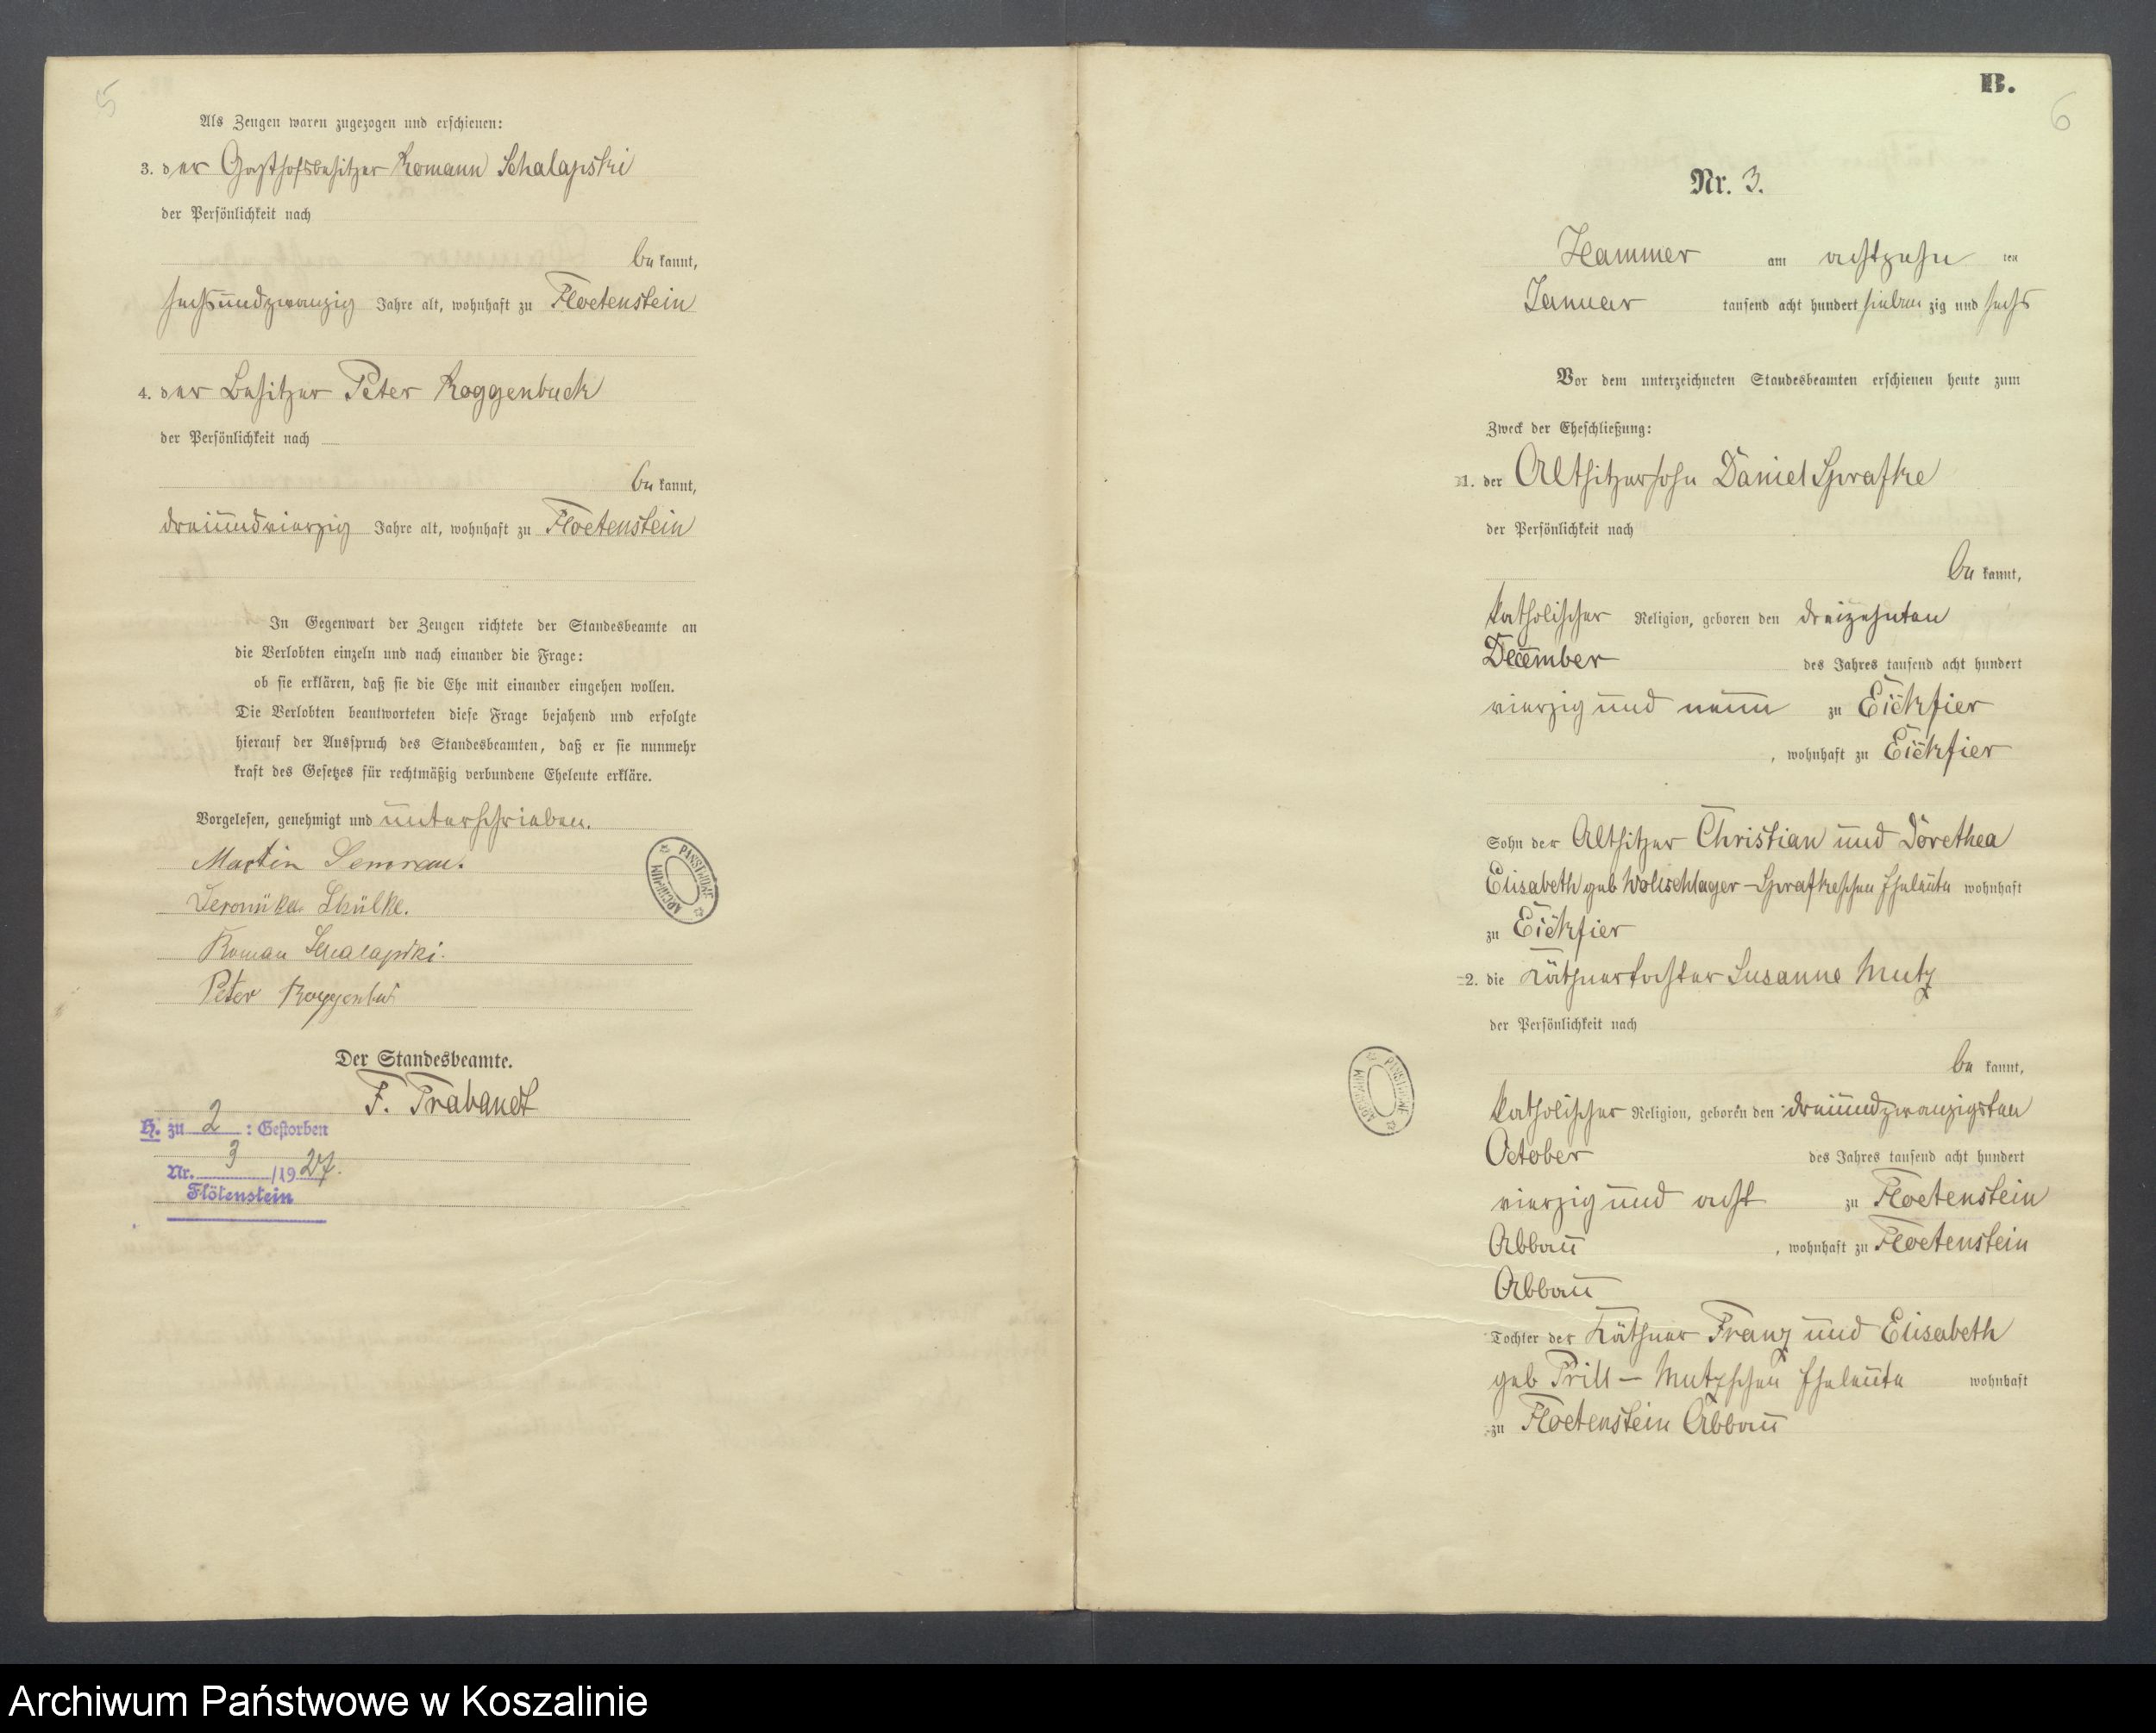 5
Als Zeugen waren zugezogen und erschienen:
3. der Gasthofsbesitzer Romann Schalapski
der Persönlichkeit nach
bekannt,
sechsundzwanzig Jahre alt, wohnhaft zu Floetenstein
4. der Besitzer Peter Roggenbuck
der Persönlichkeit nach
bekannt,
dreiundvierzig Jahre alt, wohnhaft zu Floetenstein
In Gegenwart der Zeugen richtete der Standesbeamte an
die Verlobten einzeln und nach einander die Frage:
ob sie erklären, daß sie die Ehe mit einander eingehen wollen.
Die Verlobten beantworteten diese Frage bejahend und erfolgte
hierauf der Ausspruch des Standesbeamten, daß er sie nunmehr
kraft des Gesetzes für rechtmäßig verbundene Eheleute erkläre.
Vorgelesen, genehmigt und unterschrieben.
Martin Semrau.
Veronüka
Roman Schalapski.
Peter Roggenbuck
PAŃSTWOWE ARCHIWUM
Der Standesbeamte.
F. Trabandt
H. zu 2 : Gestorben
Nr. 3 /1927.
Flötenstein
B.
6
Nr. 3.
Hammer am achtzehn ten
Januar tausend acht hundert sieben zig und sechs
Vor dem unterzeichneten Standesbeamten erschienen heute zum
Zweck der Eheschließung:
1. der Altsitzersohn Daniel Sprafke
der Persönlichkeit nach
bekannt,
katholischer Religion, geboren den dreizehnten
December des Jahres tausend acht hundert
vierzig und neun zu Eickfier
, wohnhaft zu Eickfier
Sohn der Altsitzer Christian und Dorethea
Elisabeth geb Wollschlager – Sprafkeschen Eheleute wohnhaft
zu Eickfier
2. die Käthnertochter Susanne Mutz
der Persönlichkeit nach
bekannt,
katholischer Religion, geboren den dreiundzwanzigsten
October des Jahres tausend acht hundert
vierzig und acht zu Floetenstein
Abbau , wohnhaft zu Floetenstein
Abbau
Tochter der Käthner Franz und Elisabeth
geb Prill – Mutzschen Eheleute wohnhaft
zu Floetenstein Abbau
PAŃSTWOWE ARCHIWUM
Archiwum Państwowe w Koszalinie